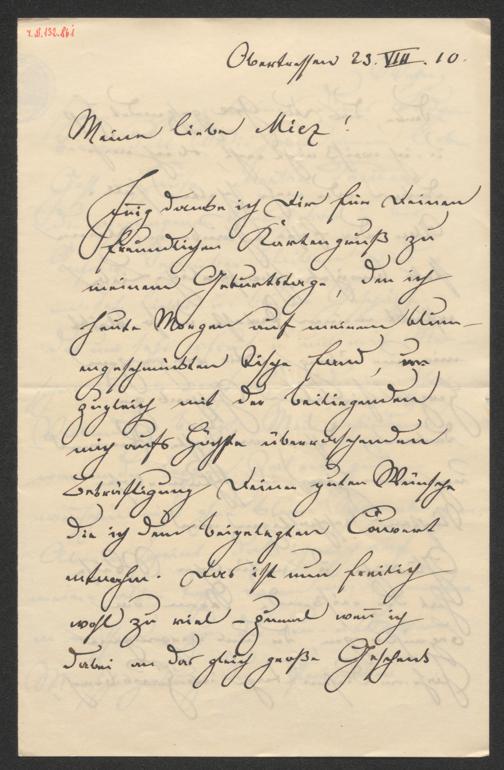 Obertressen 23. VIII. 10.
Meine liebe Miez!
Innig danke ich Dir für Deinen
freundlichen Kartengruß zu
meinem Geburtstage, den ich
heute Morgen auf meinem blum-
engeschmückten Tische fand,
zugleich mit der beiliegenden
mich aufs Höchste überraschenden
Bekräftigung Deiner guten Wünsche
die ich dem beigelegten Couvert
entnahm. Das ist nun freilich
wohl zu viel – zumal wenn ich
dabei an das gleich große Geschenk